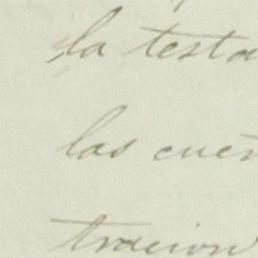 la testa
las cuen
tracion